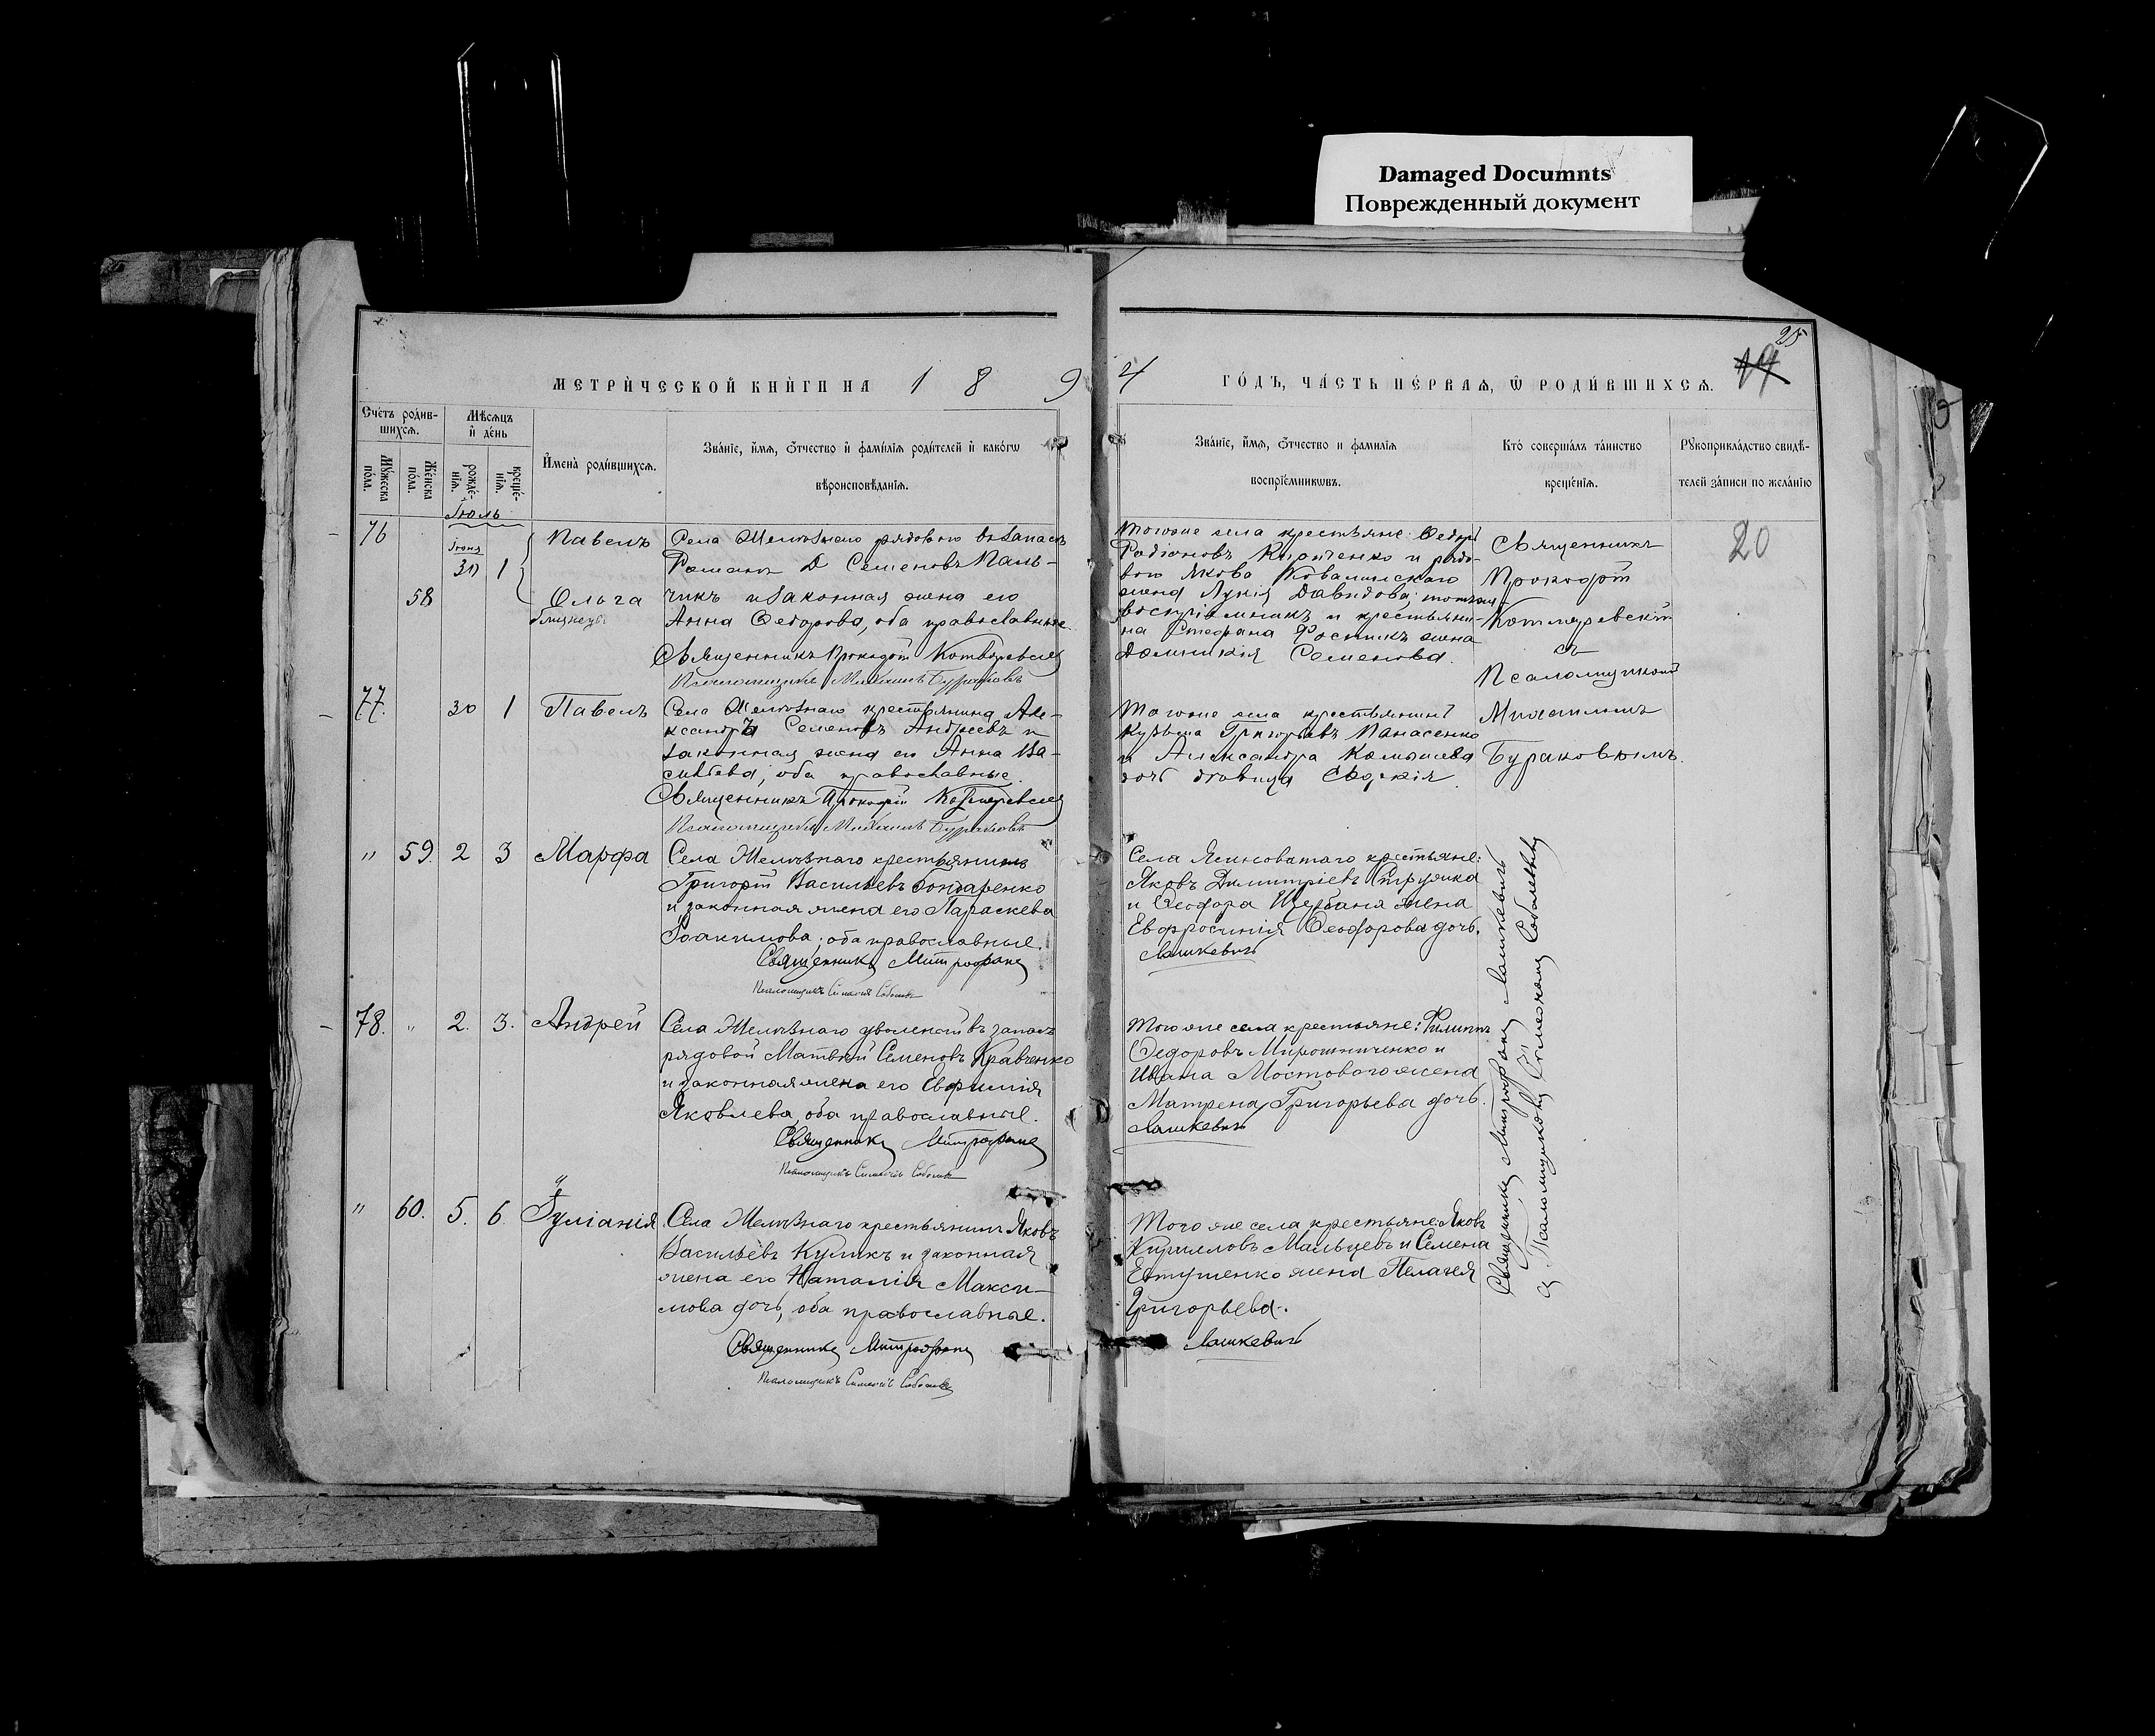 Damaged Documnts
Поврежденный документ
25
19
МЕТРИ́ЧЕСКОЙ КНИ́ГИ НА 1 8 9 4 ГО́ДЪ, ЧА́СТЬ ПЕ́РВАЯ, Ѽ РОДИ́ВШИХСЯ.
Сче́тъ родив-
шихся.
Мꙋжеска
по́ла.
Же́нска
по́ла.
Мѣсяцъ
и҆ де́нь
рожде́-
нія.
креще́-
нія.
И҆мена̀ роди́вшихся.
Зва́ніе, и҆́мя, ѻ҆́тчество и҆ фами́лія роди́телей и҆ како́гѡ
вѣроисповѣ́данія.
Зва́ніе, и҆́мя, ѻ҆́тчество и фамилія
воспріе́мникѡвъ.
Кто́ соверша́лъ та́инство
креще́нія.
Рꙋкоприкла́дство свидѣ́-
телей за́писи по жела́нію
Іюль
76
58
Іюня
30 1
Павелъ
Ольга
близнецы
Села Желѣзнаго рядового въ запасѣ
Романъ Семеновъ Паль-
чикъ и законная жена его
Анна Ѳедорова, оба православные.
Священникъ Прокофій Котляревскій
Псаломщикъ Михаилъ Бураковъ
Того же села крестьяне: Ѳедоръ
Родіоновъ Кириченко и рядо-
вого Якова Ковалинскаго
жена Лукія Давидова;
воспріемникъ и крестьяни-
на Стефана Фостикъ жена
Домникія Семенова.
Священникъ
Прокофій
Котляревскій
съ
Псаломщикомъ
Михаиломъ
Бураковымъ.
20
77. 30 1 Павелъ
Села Желѣзнаго крестьянина Але-
ксандръ Семеновъ Андреевъ и
законная жена его Анна Ва-
сильева; оба православные.
Священникъ Прокофій Котляревскій
Псаломщикъ Михаилъ Бураковъ
Того же села крестьянинъ
Кузьма Григорьевъ Панасенко
и Александра Комышева
дочь дѣвица Евдокія
" 59. 2 3 Марфа
Села Желѣзнаго крестьянинъ
Григорій Васильевъ Бондаренко
и законная жена его Параскева
Іоакимова; оба православные.
Священникъ Митрофанъ
Псаломщикъ Симеонъ Соболевъ
Села Ясиноватаго крестьяне:
Яковъ Димитріевъ Стружка
и Ѳеодора Щербаня жена
Евфросинія Ѳеодорова дочь.
Лашкевичъ
78. " 2. 3. Андрей
Села Желѣзнаго уволенный въ запасъ
рядовой Матвѣй Семеновъ Кравченко
и законная жена его Евфимія
Яковлева, оба православные.
Священникъ Митрофанъ
Псаломщикъ Симеонъ Соболевъ
Того же села крестьяне: Филиппъ
Ѳедоровъ Мирошниченко и
Ивана Мостового жена
Матрена Григорьева дочь.
Лашкевичъ
" 60. 5. 6. Іуліанія
Села Желѣзнаго крестьянинъ Яковъ
Васильевъ Куликъ и законная
жена его Наталія Макси-
мова дочь, оба православные.
Священникъ Митрофанъ
Псаломщикъ Симеонъ Соболевъ
Того же села крестьяне: Яковъ
Кирилловъ Мальцевъ и Семена
Евтушенко жена Пелагея
Григорьева.
Лашкевичъ
Священникъ Митрофанъ Лашкевичъ
съ Псаломщикомъ